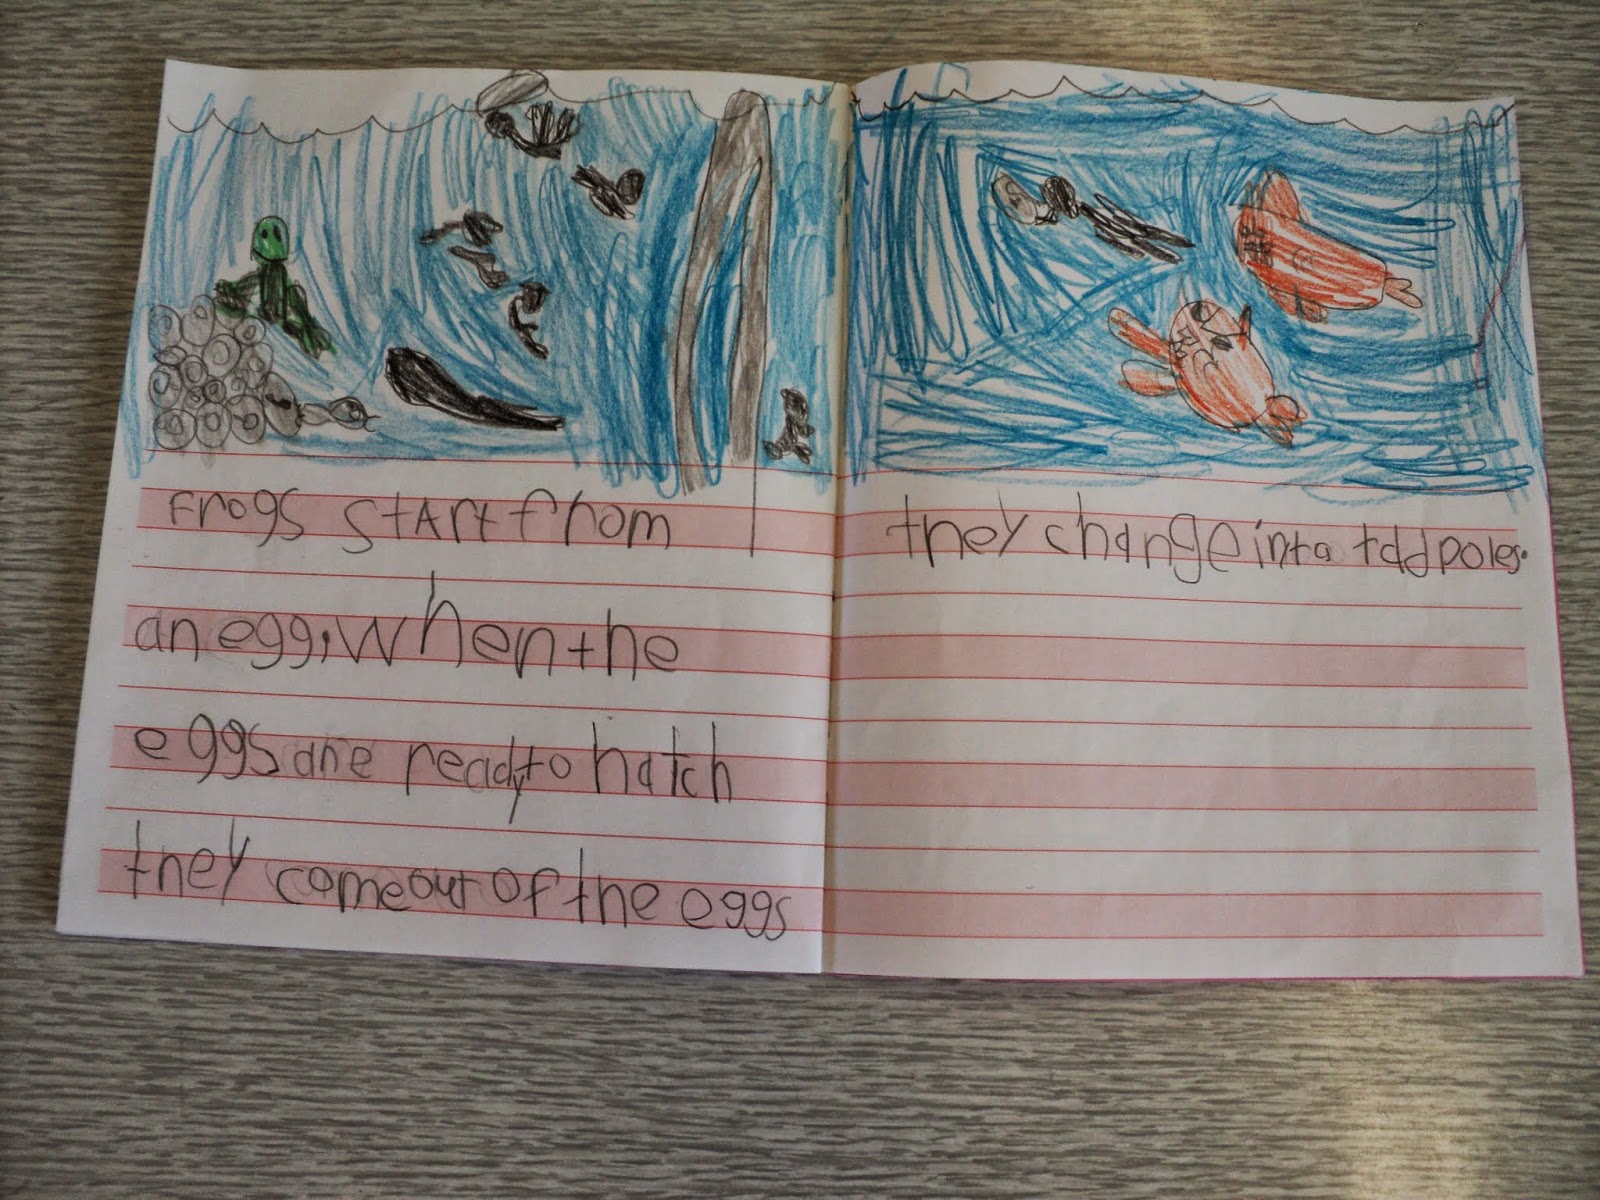 Frogs stArt from
an egg, when the
eggs are ready to hatch
they come out of the eggs
they change into tadpoles.